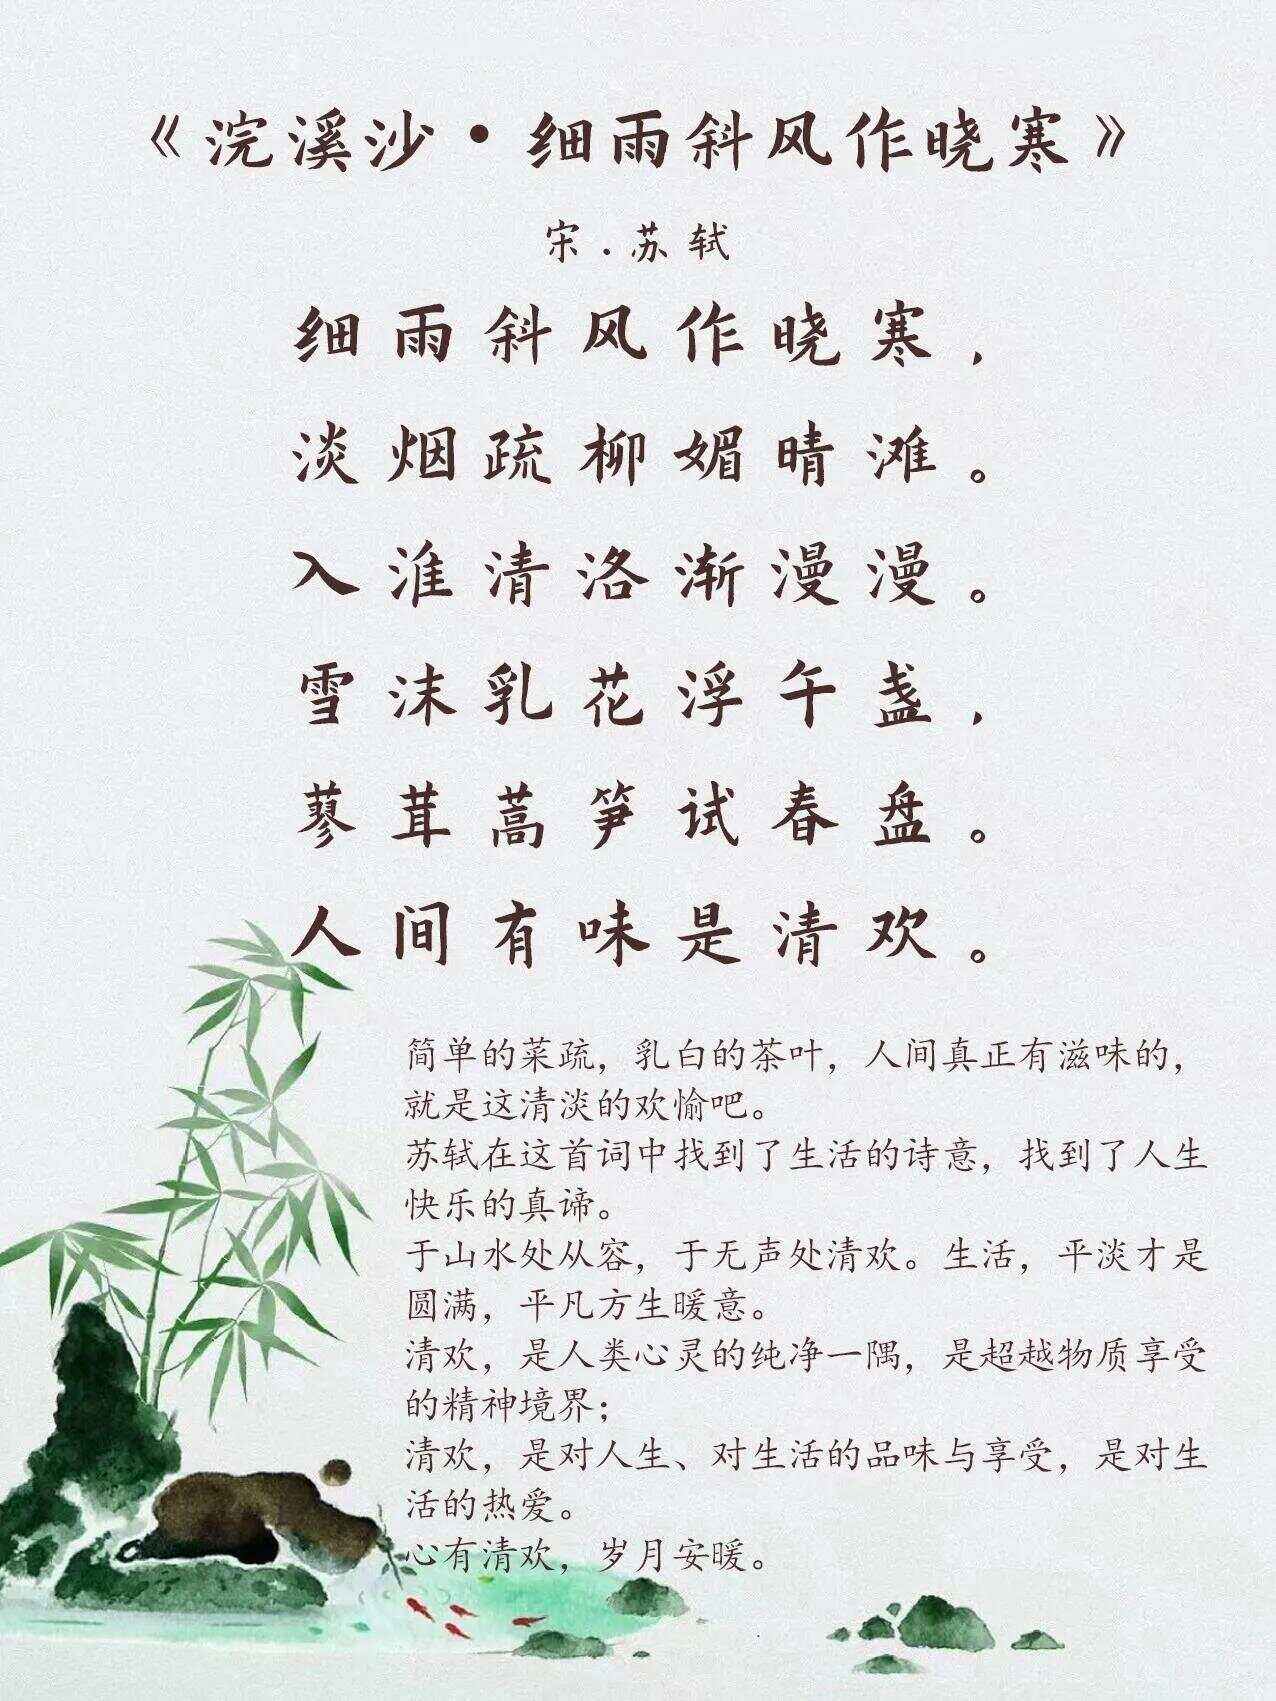 《浣溪沙·细雨斜风作晓寒》
宋.苏轼
细雨斜风作晓寒，
淡烟疏柳媚晴滩。
入淮清洛渐漫漫。
雪沫乳花浮午盏，
蓼茸蒿笋试春盘。
人间有味是清欢。
简单的菜疏，乳白的茶叶，人间真正有滋味的，
就是这清淡的欢愉吧。
苏轼在这首词中找到了生活的诗意，找到了人生
快乐的真谛。
于山水处从容，于无声处清欢。生活，平淡才是
圆满，平凡方生暖意。
清欢，是人类心灵的纯净一隅，是超越物质享受
的精神境界；
清欢，是对人生、对生活的品味与享受，是对生
活的热爱。
心有清欢，岁月安暖。